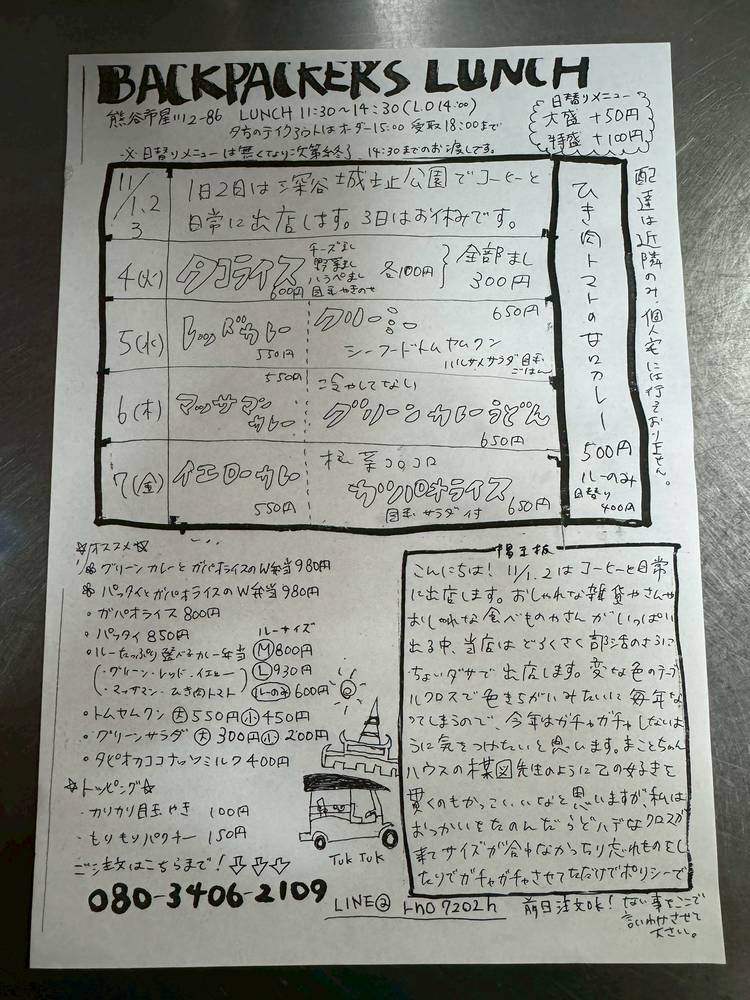 BACKPACKER'S LUNCH
熊谷市屋112-86 LUNCH 11:30〜14:30(L.O 14:00)
夕方のテイクアウトはオーダー15:00 受取18:00まで
※日替りメニューは無くなり次第終了 14:30までのお渡しです。
日替りメニュー
大盛 +50円
特盛 +100円
11/1.2 3
1日2日は深谷城址公園でコーヒーと
日常に出店します。3日はお休みです。
4(火) タコライス 600円
チーズまし
野菜まし
ハラペまし
目玉やきのせ
各100円
全部まし
300円
5(水) レッドカレー 550円
クリーミー 650円
シーフードトムヤムクン
ハルサメサラダ 目玉
ごはん
6(木) マッサマンカレー 550円
冷やしてない
グリーンカレーうどん
650円
7(金) イエローカレー 550円
根菜コロコロ
ガパオライス
目玉 サラダ付 650円
ひき肉トマトの甘口カレー
500円
ルーのみ
日替り
400円
配達は近隣のみ。個人宅には行っておりません。
☆オススメ☆
グリーンカレーとガパオライスのW弁当 980円
パッタイとガパオライスのW弁当 980円
・ガパオライス 800円
・パッタイ 850円
ルーサイズ
・ルーたっぷり選べるカレー弁当 Ⓜ800円
(・グリーン・レッド・イエロー Ⓛ930円
・マッサマン・ひき肉トマト) ルーのみ 600円
・トムヤムクン 大550円 小450円
・グリーンサラダ 大300円 小200円
・タピオカココナッツミルク 400円
☆トッピング☆
・カリカリ目玉やき 100円
・もりもりパクチー 150円
ご注文はこちらまで!⇩⇩⇩
080-3406-2109
TUK TUK
陽圭板
こんにちは! 11/1.2はコーヒーと日常
に出店します。おしゃれな雑貨やさんや
おしゃれな食べものやさんがいっぱい
出る中、当店はどろくさく部活のように
ちょいダサで出店します。変な色のテーブ
ルクロスで色きちがいみたいに毎年な
ってしまうので、今年はガチャガチャしないよ
うに気をつけたいと思います。まことちゃん
ハウスの楳図先生のように己の好きを
貫くのもかっこいいなと思いますが、私は
おつかいをたのんだらどハデなクロスが
来てサイズが合わなかったり忘れものをし
たりでガチャガチャさせてただけでポリシーで
ない事をここで
言いわけさせて
下さい。
LINE@ rno7202h 前日注文OK!